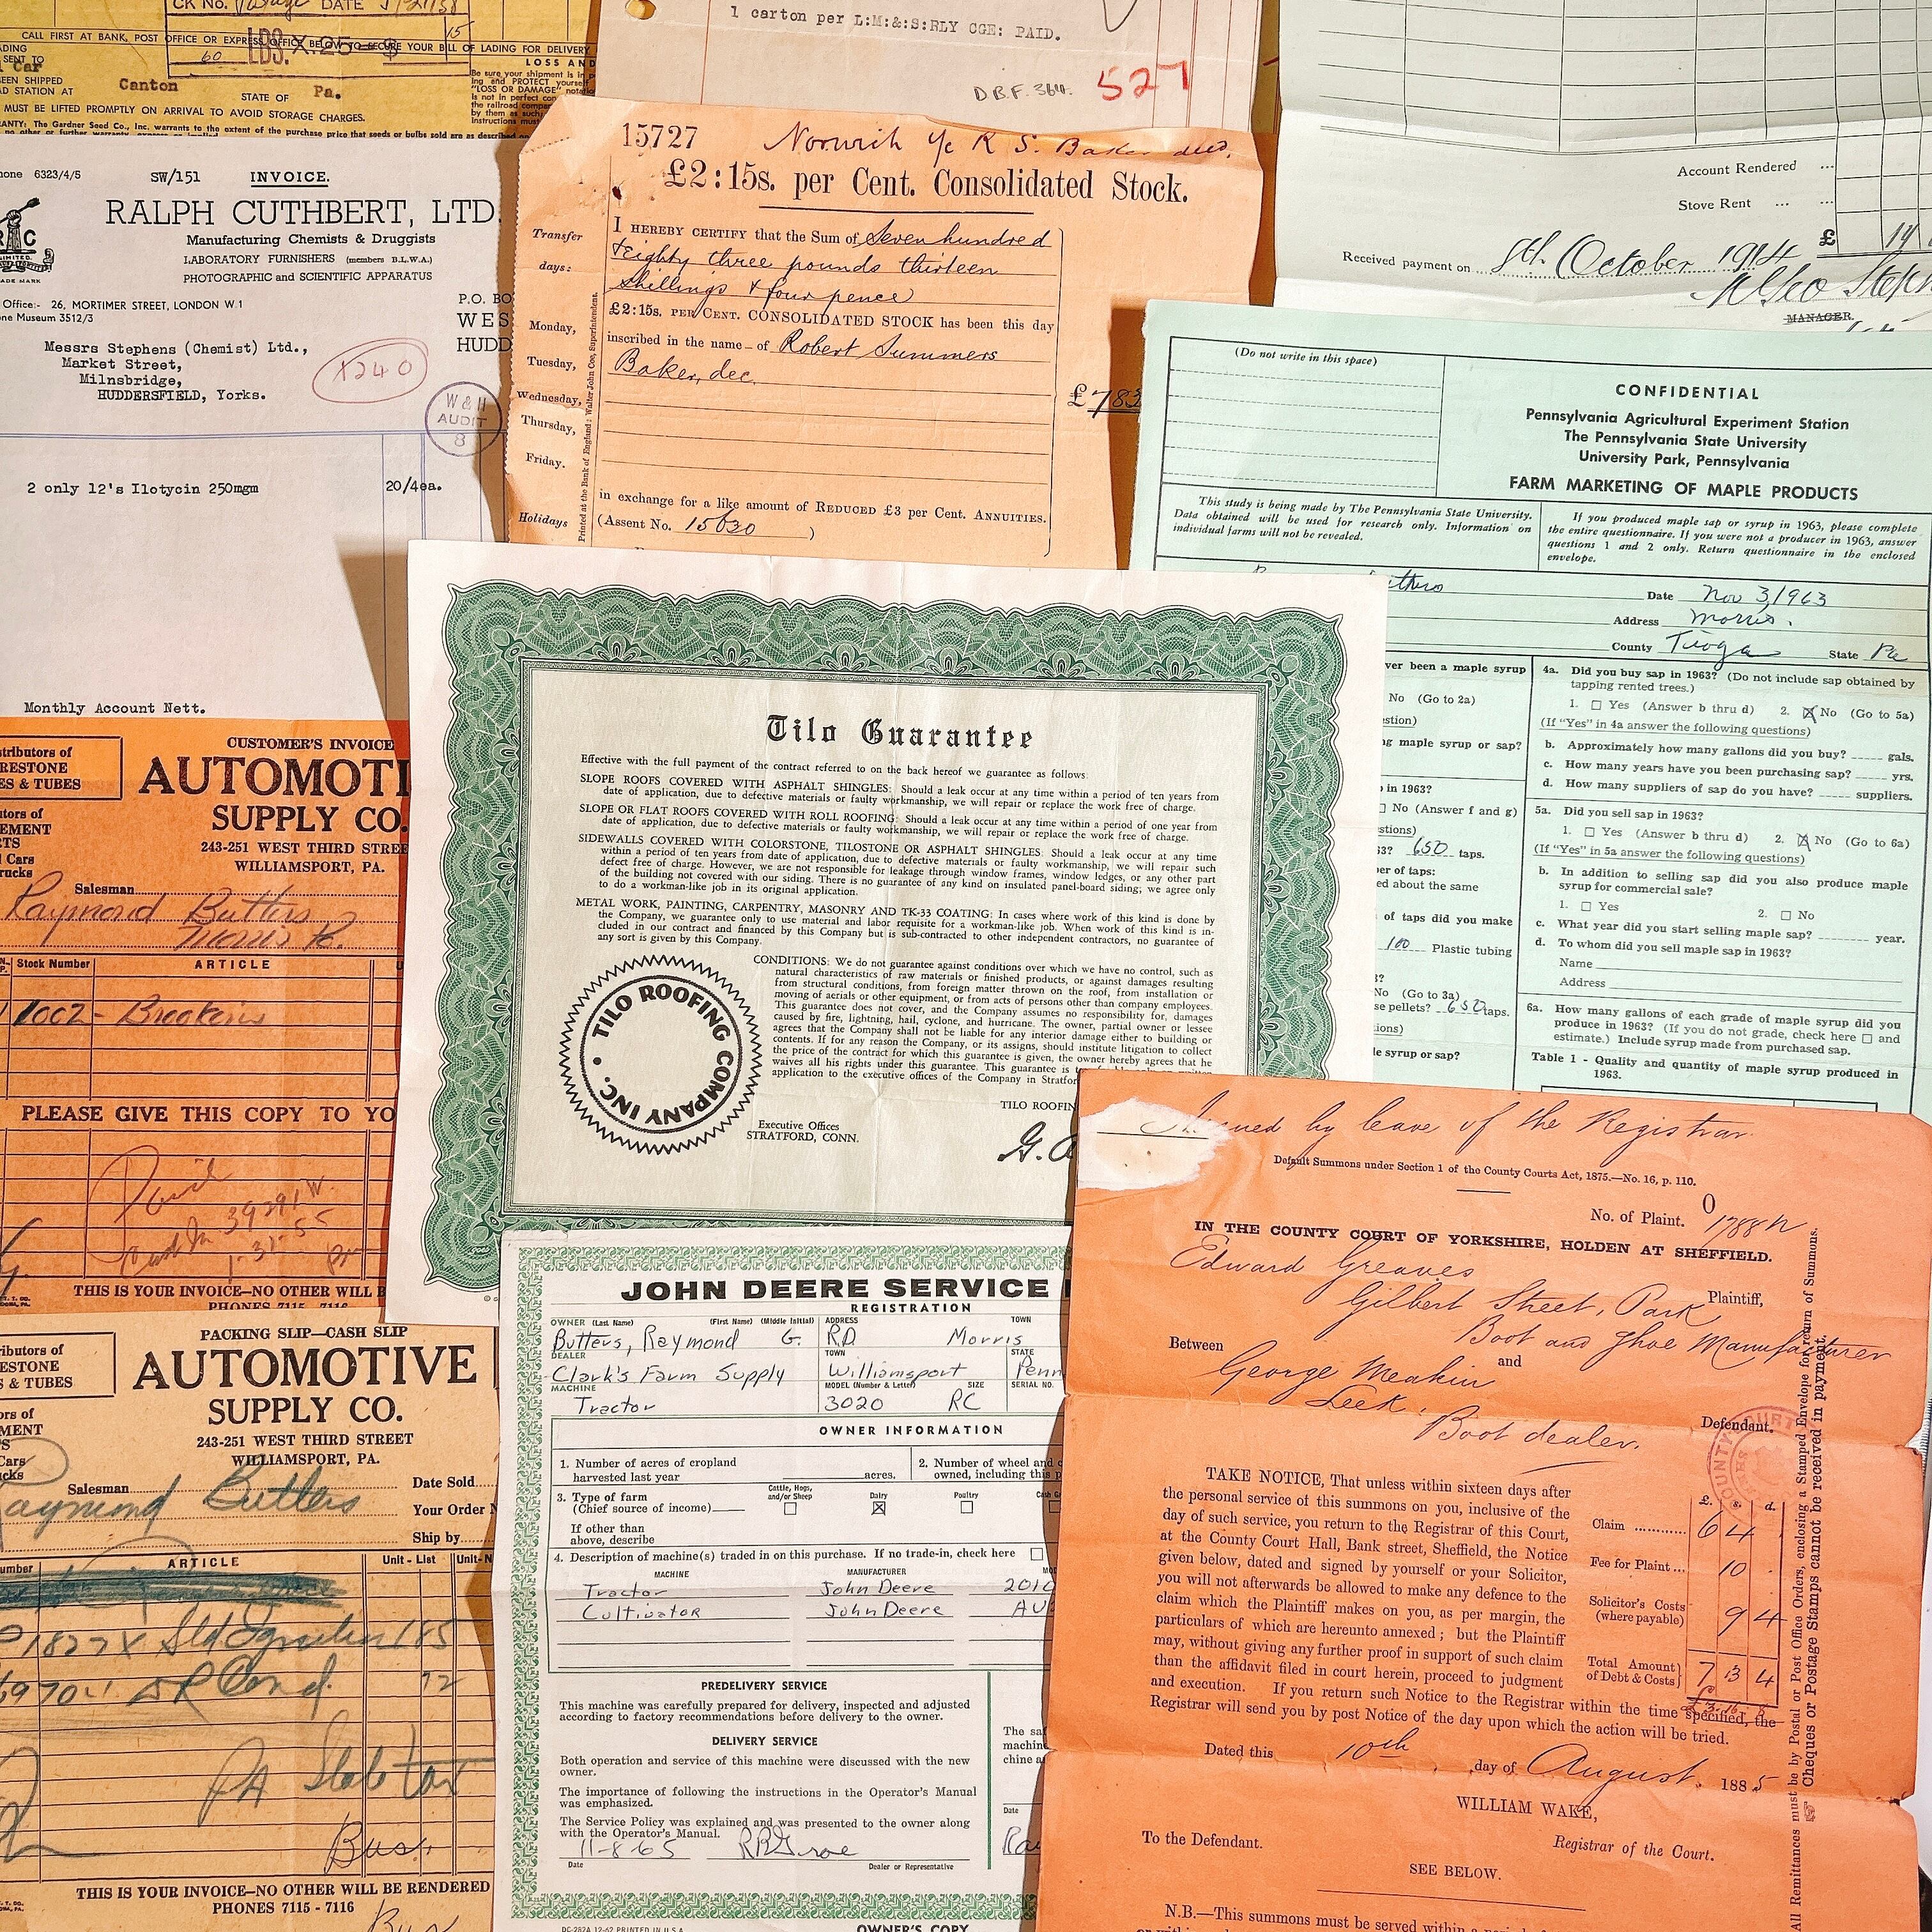 CK No.
DATE
15
CALL FIRST AT BANK, POST OFFICE OR EXPRESS OFFICE BELOW TO SECURE YOUR BILL OF LADING FOR DELIVERY
60 LBS. X.25 $
SENT TO
Car
LOSS AND
BEEN SHIPPED
STATION AT Canton STATE OF Pa.
Be sure your shipment is in
ing and PROTECT yourself
"LOSS OR DAMAGE"
is not in perfect
the railroad
by them as such
Instructions must
MUST BE LIFTED PROMPTLY ON ARRIVAL TO AVOID STORAGE CHARGES.
The Gardner Seed Co., Inc. warrants to the extent of the purchase price that seeds or bulbs sold are as described on
1 carton per L:M:&:S:RLY CGE: PAID.
D.B.F. 364. 527
Account Rendered ...
Stove Rent ... ...
£ 14
Received payment on 8th October 1914
Geo Steph
MANAGER.
hone 6323/4/5 SW/151 INVOICE.
RALPH CUTHBERT, LTD.
Manufacturing Chemists & Druggists
LABORATORY FURNISHERS (members B.L.W.A.)
PHOTOGRAPHIC and SCIENTIFIC APPARATUS
LIMITED.
TRADE MARK
Office:- 26, MORTIMER STREET, LONDON W.1
ne Museum 3512/3
P.O. BO
WES
HUDD
Messrs Stephens (Chemist) Ltd.,
Market Street,
Milnsbridge,
HUDDERSFIELD, Yorks.
X240
W & H
AUDIT
8
2 only 12's Ilotycin 250mgm 20/4ea.
Monthly Account Nett.
15727 Norwich R S. Baker decd.
£2:15s. per Cent. Consolidated Stock.
Transfer
days:
Monday,
Tuesday,
Wednesday,
Thursday,
Friday.
Holidays
Printed at the Bank of England: Walter John Coe, Superintendent.
I HEREBY CERTIFY that the Sum of Seven hundred
& Eighty three pounds thirteen
shillings & four pence
£2:15s. PER CENT. CONSOLIDATED STOCK has been this day
inscribed in the name - of Robert Summers
Baker, dec.
£783
in exchange for a like amount of REDUCED £3 per Cent. ANNUITIES.
(Assent No. 15630 )
(Do not write in this space)
CONFIDENTIAL
Pennsylvania Agricultural Experiment Station
The Pennsylvania State University
University Park, Pennsylvania
FARM MARKETING OF MAPLE PRODUCTS
This study is being made by The Pennsylvania State University.
Data obtained will be used for research only. Information on
individual farms will not be revealed.
If you produced maple sap or syrup in 1963, please complete
the entire questionnaire. If you were not a producer in 1963, answer
questions 1 and 2 only. Return questionnaire in the enclosed
envelope.
Date Nov 3, 1963
Address Morris.
County Tioga State Pa
ver been a maple syrup
No (Go to 2a)
stion)
ng maple syrup or sap?
in 1963?
No (Answer f and g)
stions)
3? 650 taps.
ber of taps:
ed about the same
of taps did you make
100 Plastic tubing
3?
No (Go to 3a)
se pellets? 650 taps.
ions)
le syrup or sap?
4a. Did you buy sap in 1963? (Do not include sap obtained by
tapping rented trees.)
1. Yes (Answer b thru d) 2. No (Go to 5a)
(If "Yes" in 4a answer the following questions)
b. Approximately how many gallons did you buy? gals.
c. How many years have you been purchasing sap? yrs.
d. How many suppliers of sap do you have? suppliers.
5a. Did you sell sap in 1963?
1. Yes (Answer b thru d) 2. No (Go to 6a)
(If "Yes" in 5a answer the following questions)
b. In addition to selling sap did you also produce maple
syrup for commercial sale?
1. Yes 2. No
c. What year did you start selling maple sap? year.
d. To whom did you sell maple sap in 1963?
Name
Address
6a. How many gallons of each grade of maple syrup did you
produce in 1963? (If you do not grade, check here and
estimate.) Include syrup made from purchased sap.
Table 1 - Quality and quantity of maple syrup produced in
1963.
Tilo Guarantee
Effective with the full payment of the contract referred to on the back hereof we guarantee as follows:
SLOPE ROOFS COVERED WITH ASPHALT SHINGLES: Should a leak occur at any time within a period of ten years from
date of application, due to defective materials or faulty workmanship, we will repair or replace the work free of charge.
SLOPE OR FLAT ROOFS COVERED WITH ROLL ROOFING: Should a leak occur at any time within a period of one year from
date of application, due to defective materials or faulty workmanship, we will repair or replace the work free of charge.
SIDEWALLS COVERED WITH COLORSTONE, TILOSTONE OR ASPHALT SHINGLES: Should a leak occur at any time
within a period of ten years from date of application, due to defective materials or faulty workmanship, we will repair such
defect free of charge. However, we are not responsible for leakage through window frames, window ledges, or any other part
of the building not covered with our siding. There is no guarantee of any kind on insulated panel-board siding; we agree only
to do a workman-like job in its original application.
METAL WORK, PAINTING, CARPENTRY, MASONRY AND TK-33 COATING: In cases where work of this kind is done by
the Company, we guarantee only to use material and labor requisite for a workman-like job. When work of this kind is in-
cluded in our contract and financed by this Company but is sub-contracted to other independent contractors, no guarantee of
any sort is given by this Company.
CONDITIONS: We do not guarantee against conditions over which we have no control, such as
natural characteristics of raw materials or finished products, or against damages resulting
from structural conditions, from foreign matter thrown on the roof, from installation or
moving of aerials or other equipment, or from acts of persons other than company employees.
This guarantee does not cover, and the Company assumes no responsibility for, damages
caused by fire, lightning, hail, cyclone, and hurricane. The owner, partial owner or lessee
agrees that the Company shall not be liable for any interior damage either to building or
contents. If for any reason the Company, or its assigns, should institute litigation to collect
the price of the contract for which this guarantee is given, the owner hereby agrees that he
waives all his rights under this guarantee. This guarantee is
application to the executive offices of the Company in Stratfor
TILO ROOFING COMPANY INC.
TILO ROOFIN
Executive Offices
STRATFORD, CONN.
G. A
stributors of
RESTONE
ES & TUBES
CUSTOMER'S INVOICE
AUTOMOTI
SUPPLY CO.
243-251 WEST THIRD STREE
WILLIAMSPORT, PA.
utors of
EMENT
RTS
Cars
rucks
Salesman
Raymond Butters
Morris Pa.
Stock Number ARTICLE U
1002 -
PLEASE GIVE THIS COPY TO YO
Paid
39291
1-31-55
THIS IS YOUR INVOICE—NO OTHER WILL B
PHONES 7115 - 7116
PACKING SLIP—CASH SLIP
AUTOMOTIVE
SUPPLY CO.
243-251 WEST THIRD STREET
WILLIAMSPORT, PA.
ributors of
ESTONE
S & TUBES
ors of
MENT
S
Cars
cks
Salesman
Date Sold
Raymond Butters
Your Order N
Ship by
umber ARTICLE Unit - List Unit-N
1827X 185
72
PA State tax
THIS IS YOUR INVOICE—NO OTHER WILL BE RENDERED
PHONES 7115 - 7116
JOHN DEERE SERVICE
REGISTRATION
OWNER (Last Name) (First Name) (Middle Initial) ADDRESS TOWN
Butters, Raymond G. RD Morris
DEALER TOWN STATE
Clark's Farm Supply Williamsport Penn
MACHINE MODEL (Number & Letter) SIZE SERIAL NO.
Tractor 3020 RC
OWNER INFORMATION
1. Number of acres of cropland
harvested last year acres.
2. Number of wheel and c
owned, including this p
3. Type of farm
(Chief source of income)
Cattle, Hogs,
and/or Sheep
Dairy
Poultry
Cash G
If other than
above, describe
4. Description of machine(s) traded in on this purchase. If no trade-in, check here
MACHINE MANUFACTURER MO
Tractor John Deere 2010
Cultivator John Deere AU
PREDELIVERY SERVICE
This machine was carefully prepared for delivery, inspected and adjusted
according to factory recommendations before delivery to the owner.
DELIVERY SERVICE
Both operation and service of this machine were discussed with the new
owner.
The importance of following the instructions in the Operator's Manual
was emphasized.
The Service Policy was explained and was presented to the owner along
with the Operator's Manual.
11-8-65
Date Dealer or Representative
The saf
machin
chine a
Date
Ray
DC-282A 12-62 PRINTED IN U.S.A. OWNER'S COPY
by leave of the Registrar
Default Summons under Section 1 of the County Courts Act, 1875.—No. 16, p. 110.
O
No. of Plaint. 1788
IN THE COUNTY COURT OF YORKSHIRE, HOLDEN AT SHEFFIELD.
Edward Greaves
Gilbert Street, Park Plaintiff,
Boot and Shoe Manufacturer
Between and
George Meakin
Leek.
Boot dealer. Defendant.
COUNTY COURT
TAKE NOTICE, That unless within sixteen days after
the personal service of this summons on you, inclusive of the
day of such service, you return to the Registrar of this Court,
at the County Court Hall, Bank street, Sheffield, the Notice
given below, dated and signed by yourself or your Solicitor,
you will not afterwards be allowed to make any defence to the
claim which the Plaintiff makes on you, as per margin, the
particulars of which are hereunto annexed; but the Plaintiff
may, without giving any further proof in support of such claim
than the affidavit filed in court herein, proceed to judgment
and execution. If you return such Notice to the Registrar within the time specified, the
Registrar will send you by post Notice of the day upon which the action will be tried.
£. s. d.
Claim 6 4
Fee for Plaint... 10
Solicitor's Costs
(where payable) 9 4
Total Amount
of Debt & Costs 7 13 4
Dated this 10th day of August, 1885
WILLIAM WAKE,
Registrar of the Court.
To the Defendant.
SEE BELOW.
N.B.—This summons must be served within a
All Remittances must be by Postal or Post Office Orders, enclosing a Stamped Envelope for return of Summons.
Cheques or Postage Stamps cannot be received in payment.